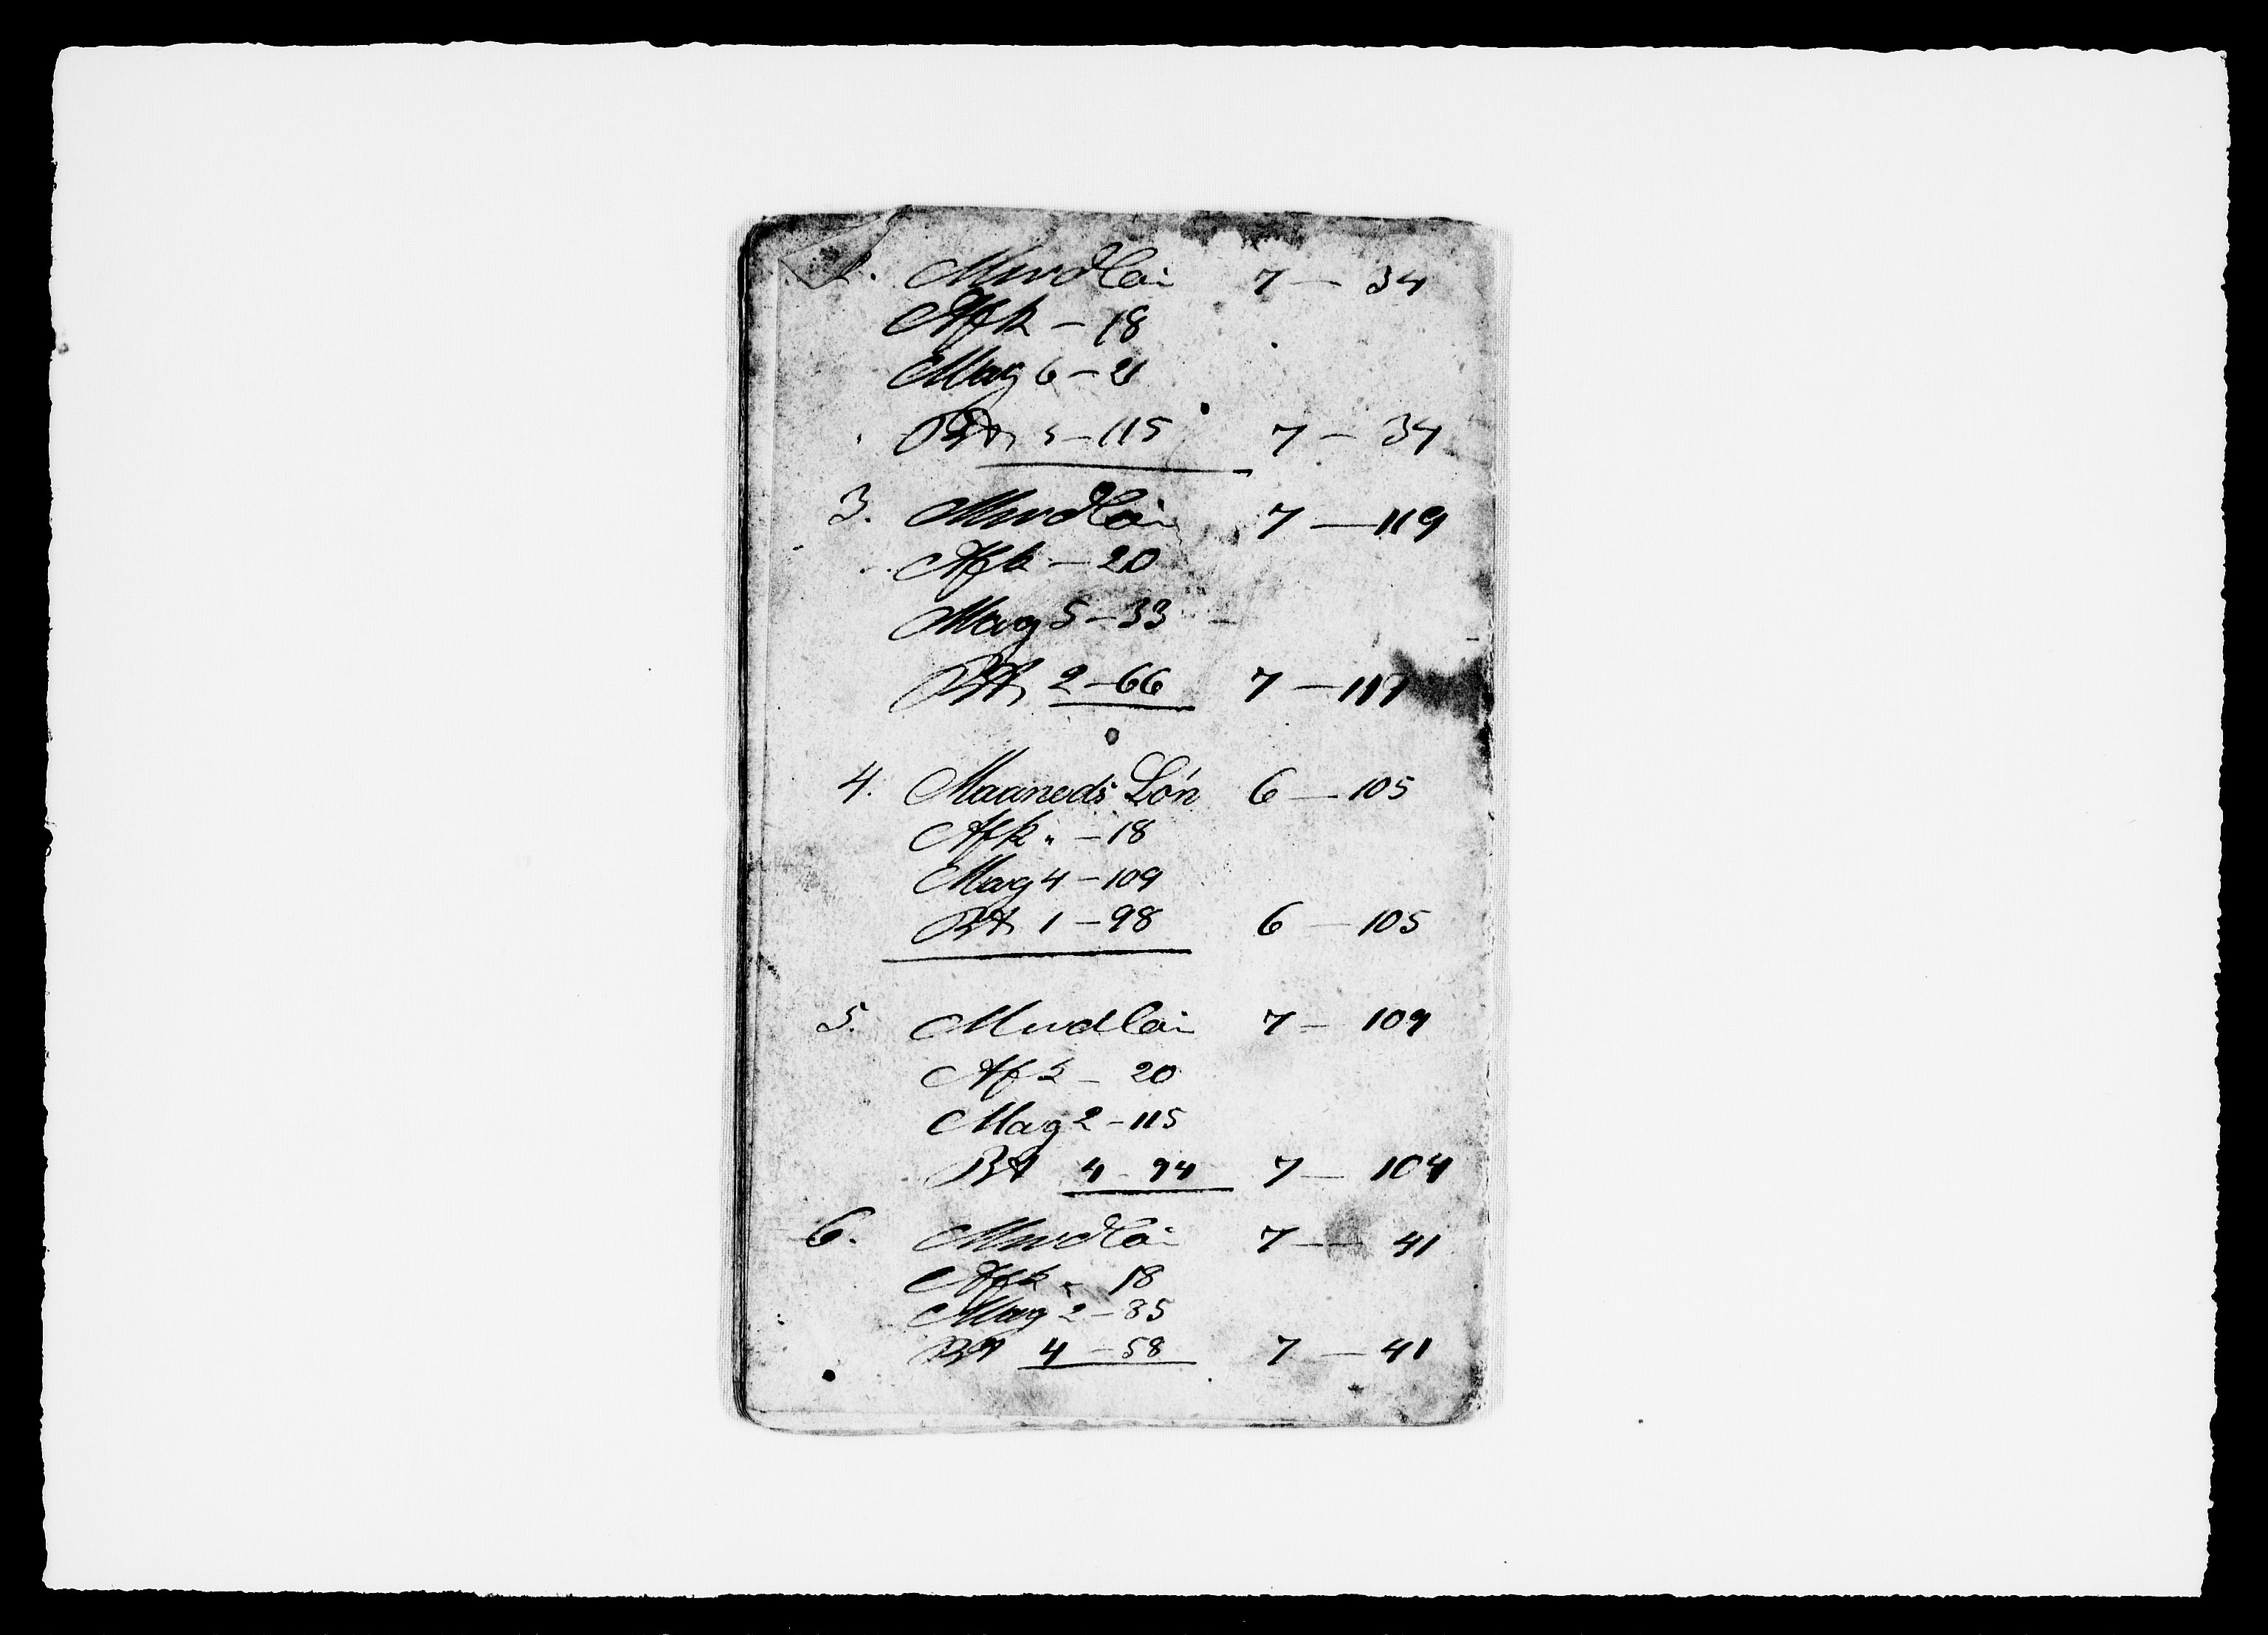 2. Mndløn 7 — 34
Afk — 18
Mag 6 — 21
Bt 5 — 115 7 — 34
3. Mndløn 7 — 119
Afk — 20
Mag 5 — 33
Bt 2 — 66 7 — 119
4. Maaneds Løn 6 — 105
Afk " — 18
Mag 4 — 109
Bt 1 — 98 6 — 105
5. Mndløn 7 — 109
Afk — 20
Mag 2 — 115
Bt 4 — 94 7 — 109
6. Mndløn 7 — 41
Afk " 18
Mag 2 — 85
Bt 4 — 58 7 — 41